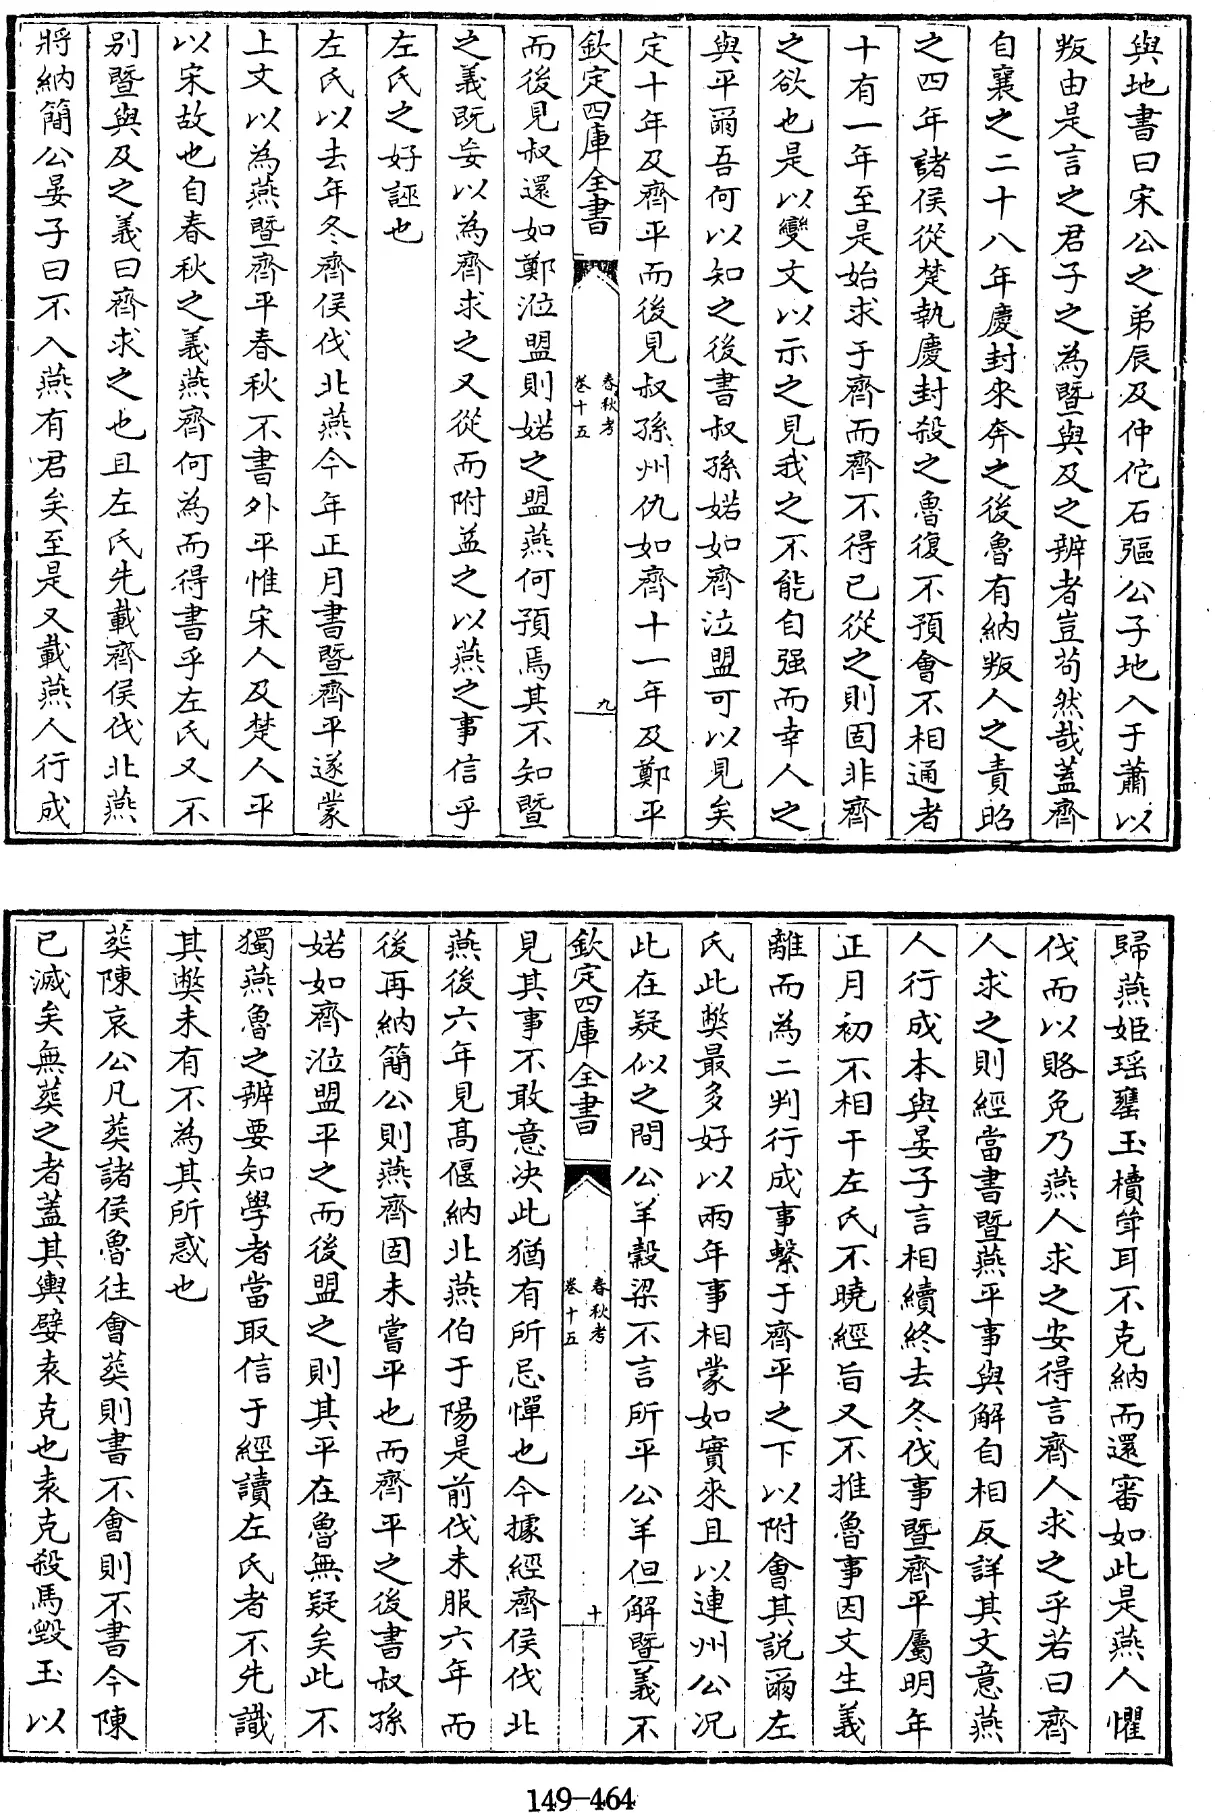 與地書曰宋公之弟辰及仲佗石彄公子地入于蕭以
叛由是言之君子之為暨與及之辨者豈苟然哉蓋齊
自襄之二十八年慶封來奔之後魯有納叛人之責昭
之四年諸侯從楚執慶封殺之魯復不預會不相通者
十有一年至是始求于齊而齊不得已從之則固非齊
之欲也是以變文以示之見我之不能自强而幸人之
與平爾吾何以知之後書叔孫婼如齊涖盟可以見矣
定十年及齊平而後見叔孫州仇如齊十一年及鄭平
欽定四庫全書
春秋考
卷十五
九
而後見叔還如鄭涖盟則婼之盟燕何預焉其不知暨
之義既妄以為齊求之又從而附益之以燕之事信乎
左氏之好誣也
左氏以去年冬齊侯伐北燕今年正月書暨齊平遂蒙
上文以為燕暨齊平春秋不書外平惟宋人及楚人平
以宋故也自春秋之義燕齊何為而得書乎左氏又不
别暨與及之義曰齊求之也且左氏先載齊侯伐北燕
將納簡公晏子曰不入燕有君矣至是又載燕人行成
歸燕姬瑶罋玉櫝斝耳不克納而還審如此是燕人懼
伐而以賂免乃燕人求之安得言齊人求之乎若曰齊
人求之則經當書暨燕平事與解自相反詳其文意燕
人行成本與晏子言相續終去冬伐事暨齊平屬明年
正月初不相干左氏不曉經旨又不推魯事因文生義
離而為二判行成事繫于齊平之下以附會其説爾左
氏此弊最多好以兩年事相蒙如實來且以連州公况
此在疑似之間公羊榖梁不言所平公羊但解暨義不
欽定四庫全書
春秋考
卷十五
十
見其事不敢意决此猶有所忌憚也今據經齊侯伐北
燕後六年見髙偃納北燕伯于陽是前伐未服六年而
後再納簡公則燕齊固未嘗平也而齊平之後書叔孫
婼如齊涖盟平之而後盟之則其平在魯無疑矣此不
獨燕魯之辨要知學者當取信于經讀左氏者不先識
其弊未有不為其所惑也
葬陳哀公凡葬諸侯魯往會葬則書不會則不書今陳
已滅矣無葬之者蓋其輿嬖袁克也袁克殺馬毁玉以
149-464